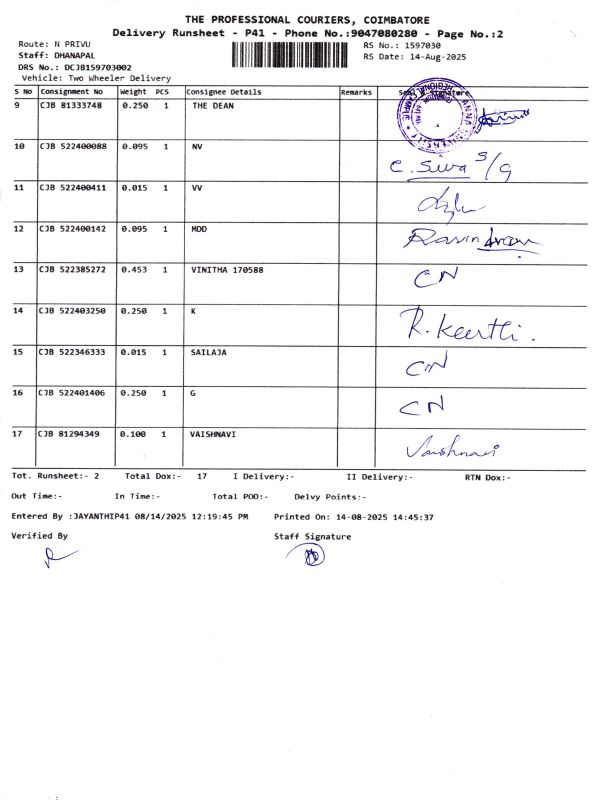 THE PROFESSIONAL COURIERS, COIMBATORE
Delivery Runsheet - P41 - Phone No.:9047080280 - Page No.:2
Route: N PRIVU
RS No.: 1597030
Staff: DHANAPAL
RS Date: 14-Aug-2025
DRS No.: DCJB159703002
Vehicle: Two Wheeler Delivery
S No Consignment No Weight PCS Consignee Details Remarks Seal & Signature
9 CJB 81333748 0.250 1 THE DEAN
10 CJB 522400088 0.095 1 NV C. Siva S/G
11 CJB 522400411 0.015 1 VV
12 CJB 522400142 0.095 1 MDD
13 CJB 522385272 0.453 1 VINITHA 170588 CN
14 CJB 522403250 0.250 1 K R. Keerthi.
15 CJB 522346333 0.015 1 SAILAJA CN
16 CJB 522401406 0.250 1 G CN
17 CJB 81294349 0.100 1 VAISHNAVI Vaishnavi
Tot. Runsheet:- 2 Total Dox:- 17 I Delivery:- II Delivery:- RTN Dox:-
Out Time:- In Time:- Total POD:- Delvy Points:-
Entered By :JAYANTHIP41 08/14/2025 12:19:45 PM Printed On: 14-08-2025 14:45:37
Verified By Staff Signature